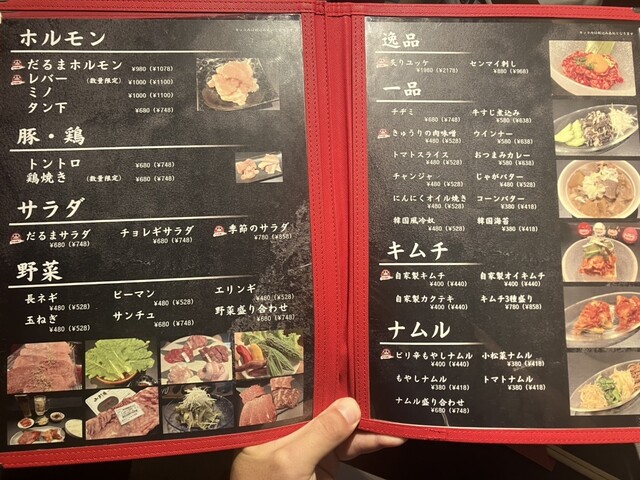 ホルモン
だるまホルモン ¥980 (¥1078)
レバー (数量限定) ¥1000 (¥1100)
ミノ ¥1000 (¥1100)
タン下 ¥680 (¥748)
豚・鶏
トントロ ¥680 (¥748)
鶏焼き (数量限定) ¥680 (¥748)
サラダ
だるまサラダ チョレギサラダ 季節のサラダ
¥680 (¥748) ¥680 (¥748) ¥780 (¥858)
野菜
長ネギ ピーマン エリンギ
¥480 (¥528) ¥480 (¥528) ¥480 (¥528)
玉ねぎ サンチュ 野菜盛り合わせ
¥480 (¥528) ¥680 (¥748) ¥680 (¥748)
逸品
炙りユッケ センマイ刺し
¥1980 (¥2178) ¥880 (¥968)
一品
チヂミ 牛すじ煮込み
¥680 (¥748) ¥580 (¥638)
きゅうりの肉味噌 ウインナー
¥480 (¥528) ¥580 (¥638)
トマトスライス おつまみカレー
¥480 (¥528) ¥580 (¥638)
チャンジャ じゃがバター
¥480 (¥528) ¥480 (¥528)
にんにくオイル焼き コーンバター
¥480 (¥528) ¥380 (¥418)
韓国風冷奴 韓国海苔
¥480 (¥528) ¥380 (¥418)
キムチ
自家製キムチ 自家製オイキムチ
¥400 (¥440) ¥400 (¥440)
自家製カクテキ キムチ3種盛り
¥400 (¥440) ¥780 (¥858)
ナムル
ピリ辛もやしナムル 小松菜ナムル
¥400 (¥440) ¥380 (¥418)
もやしナムル トマトナムル
¥380 (¥418) ¥380 (¥418)
ナムル盛り合わせ
¥680 (¥748)